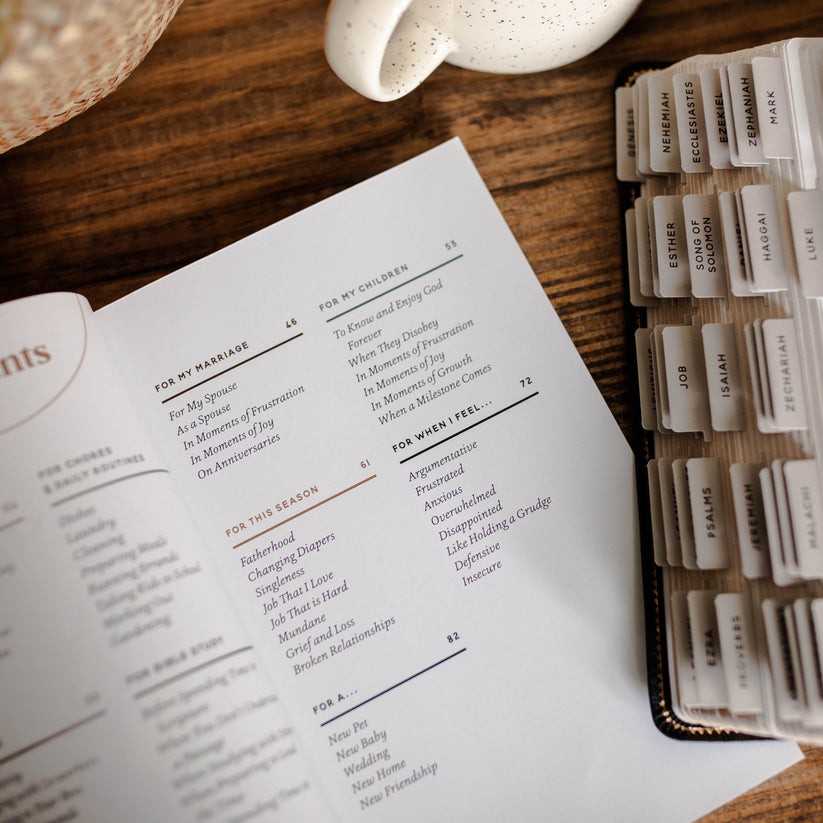 ents
FOR CHORES
& DAILY ROUTINES
Dishes
Laundry
Cleaning
Preparing Meals
Running Errands
Taking Kids to School
Working Out
Gardening
FOR BIBLE STUDY
Before Spending Time
Scripture
FOR MY MARRIAGE 46
For My Spouse
As a Spouse
In Moments of Frustration
In Moments of Joy
On Anniversaries
FOR THIS SEASON 61
Fatherhood
Changing Diapers
Singleness
Job That I Love
Job That is Hard
Mundane
Grief and Loss
Broken Relationships
FOR A... 82
New Pet
New Baby
Wedding
New Home
New Friendship
FOR MY CHILDREN 53
To Know and Enjoy God
Forever
When They Disobey
In Moments of Frustration
In Moments of Joy
In Moments of Growth
When a Milestone Comes
FOR WHEN I FEEL... 72
Argumentative
Frustrated
Anxious
Overwhelmed
Disappointed
Like Holding a Grudge
Defensive
Insecure
GENESIS
NEHEMIAH
ECCLESIASTES
EZEKIEL
ZEPHANIAH
MARK
ESTHER
SONG OF
SOLOMON
DANIEL
HAGGAI
LUKE
LEVITICUS
JOB
ISAIAH
ZECHARIAH
PSALMS
JEREMIAH
MALACHI
EZRA
PROVERBS